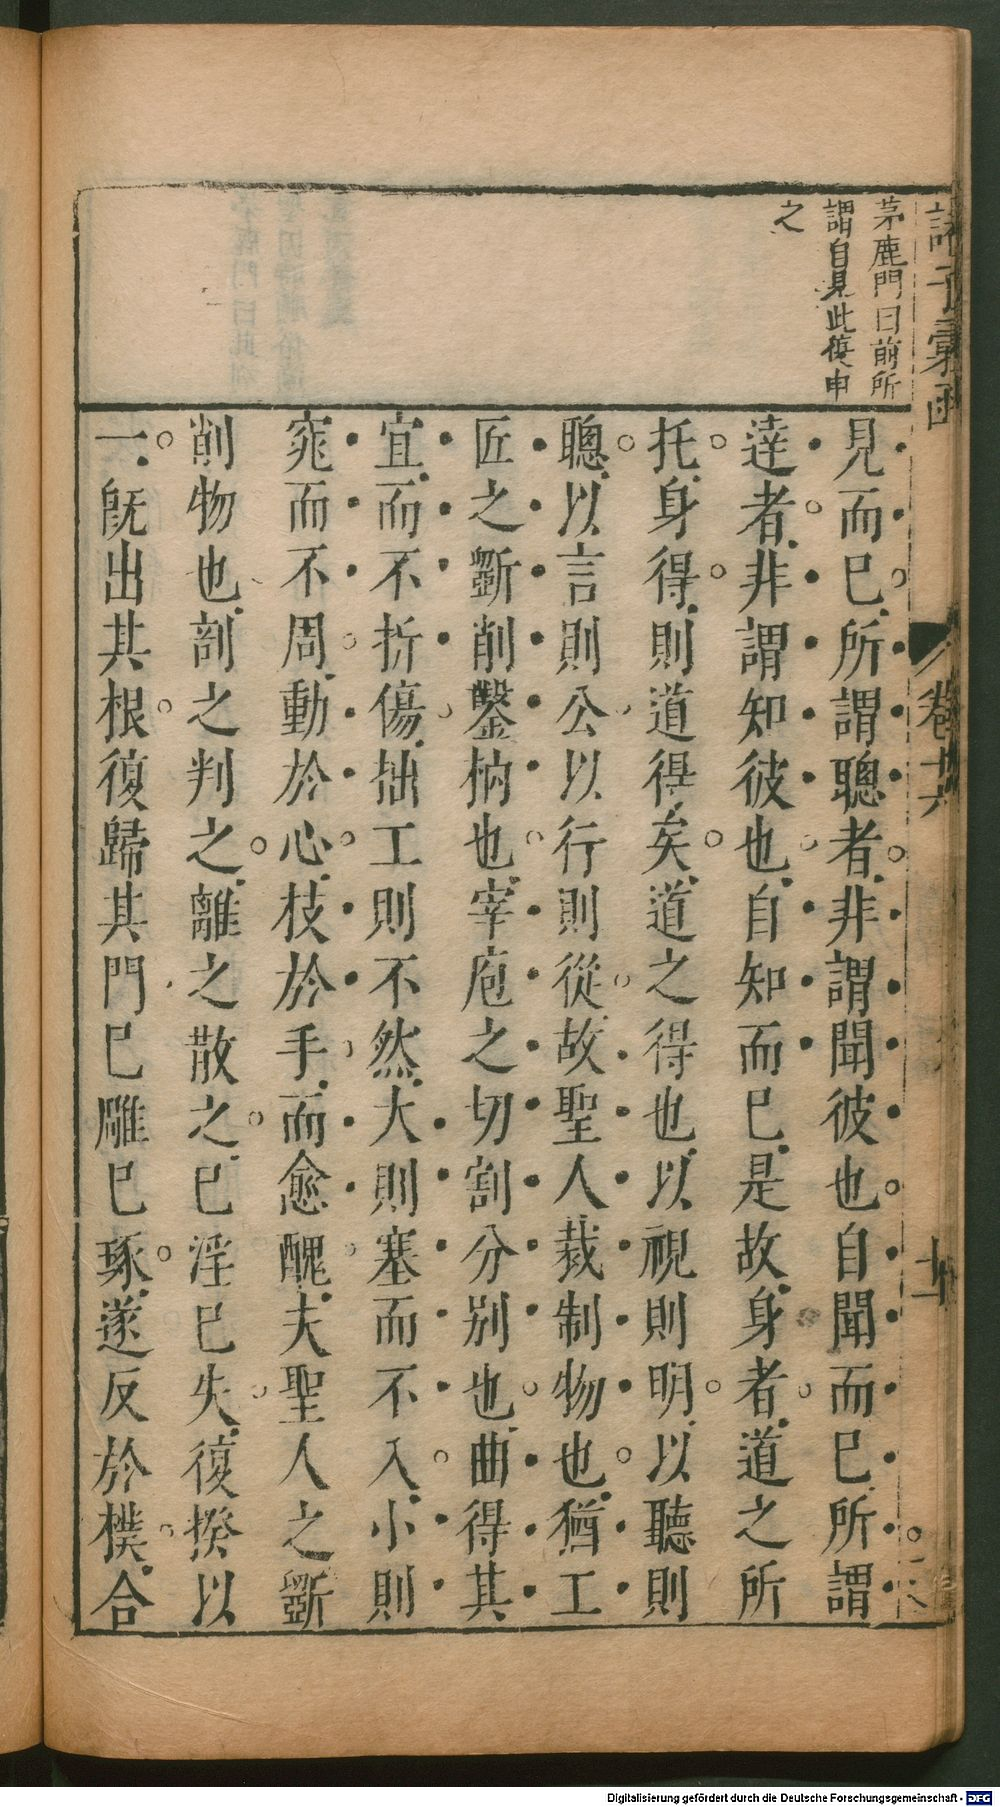 諸子彙函
卷十六
茅鹿門曰前所
謂自見此復申
之
見而已所謂聰者非謂聞彼也自聞而已所謂
達者非謂知彼也自知而已是故身者道之所
托身得則道得矣道之得也以視則明以聽則
聰以言則公以行則從故聖人裁制物也猶工
匠之斲削鑿枘也宰庖之切割分別也曲得其
宜而不折傷拙工則不然大則塞而不入小則
窕而不周動於心枝於手而愈醜夫聖人之斲
削物也剖之判之離之散之已淫已失復揆以
一既出其根復歸其門已雕已琢遂反於樸合
Digitalisierung gefördert durch die Deutsche Forschungsgemeinschaft - DFG